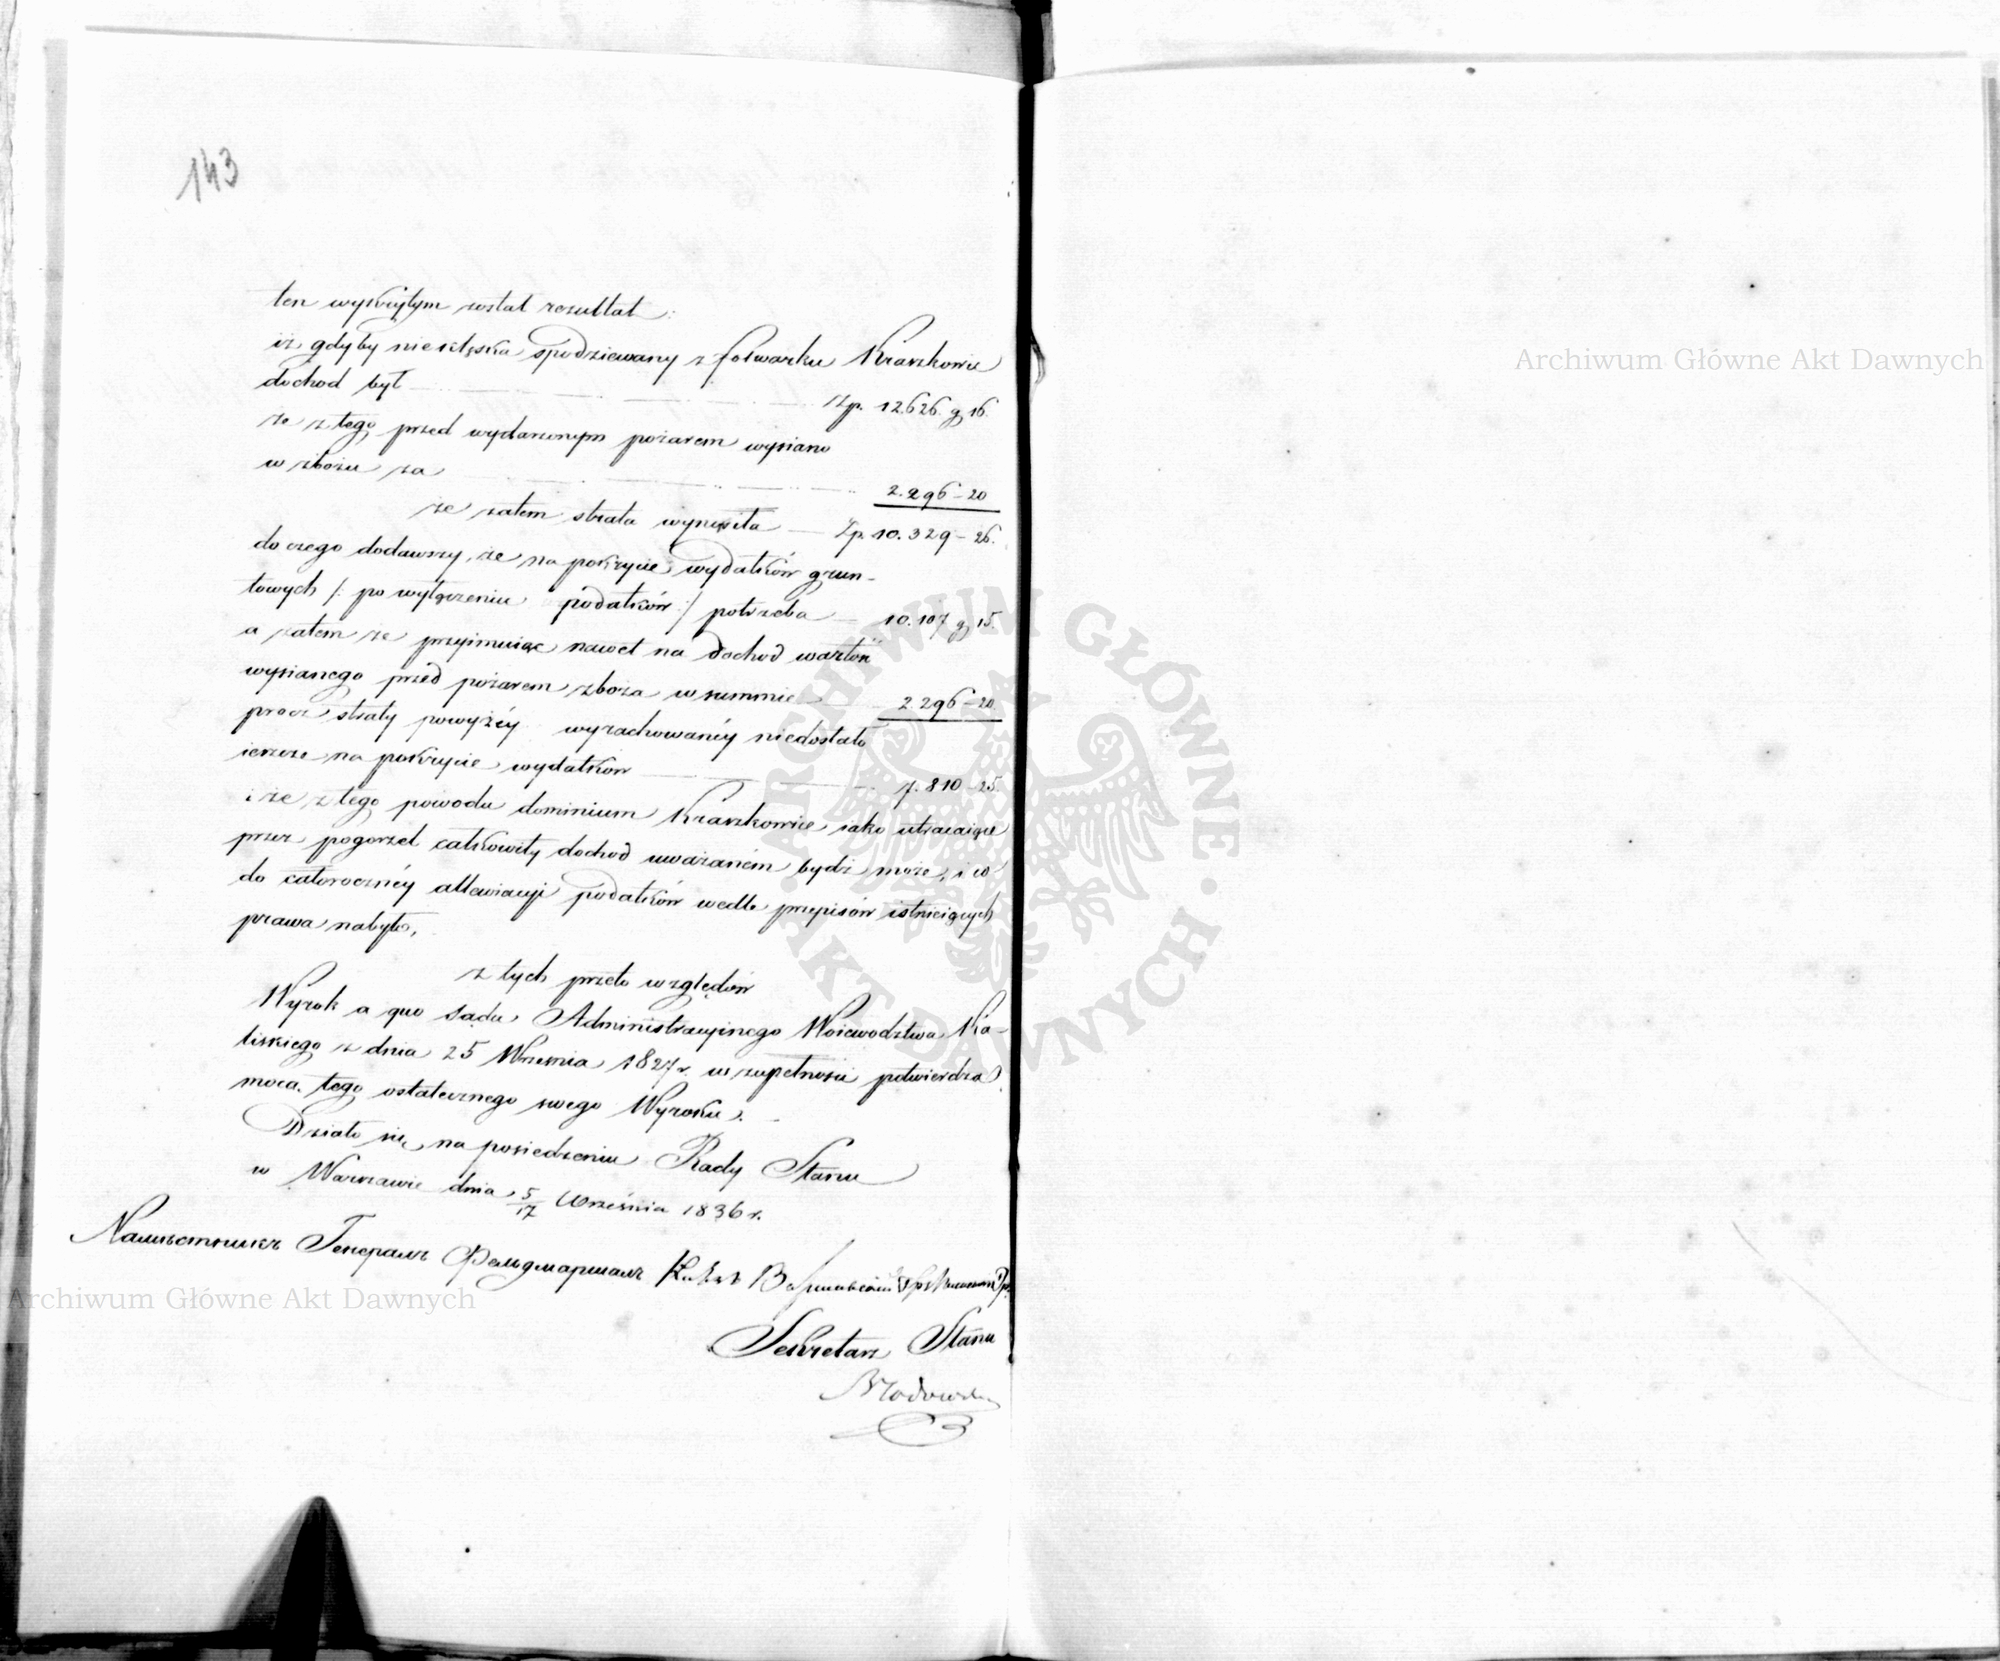 143
ten wykrytym został rezultat:
iż gdyby nie klęska spodziewany z folwarku Kraszkowic
dochod był Złp. 12626. g 16.
że z tego przed wydarzonym pożarem wysiano
w zbożu za 2.296-20
że zatem strata wyniosła Zp. 10.329-26.
do czego dodawszy, że na pokrycie wydatków grun-
towych /: po wyłączeniu podatków :/ potrzeba 10.107 g 15.
a zatem że przyimuiąc nawet na dochod wartość
wysianego przed pożarem zboża w summie 2.296-20.
procz straty powyżéy wyrachowanéy niedostało
ieszcze na pokrycie wydatków 7.810-25.
i że z tego powodu dominium Kraszkowice iako utracaiące
przez pogorzel całkowity dochod uważaném bydź może, i
do całorocznéy allewiacyi podatków wedle przepisów istnieiących
prawa nabyło,
z tych przeto względów
Wyrok a quo Sądu Administracyinego Woiewodztwa Ka-
liskiego z dnia 25 Września 1827 r. w zupełności potwierdza
mocą tego ostatecznego swego Wyroku.
Działo się na posiedzeniu Rady Stanu
w Warszawie dnia 5/17 Września 1836 r.
Намѣстникъ Генералъ Фельдмаршалъ Князь Варшавскій
Sekretarz Stanu
Archiwum Główne Akt Dawnych
Archiwum Główne Akt Dawnych
ARCHIWUM GŁÓWNE · AKT DAWNYCH ·